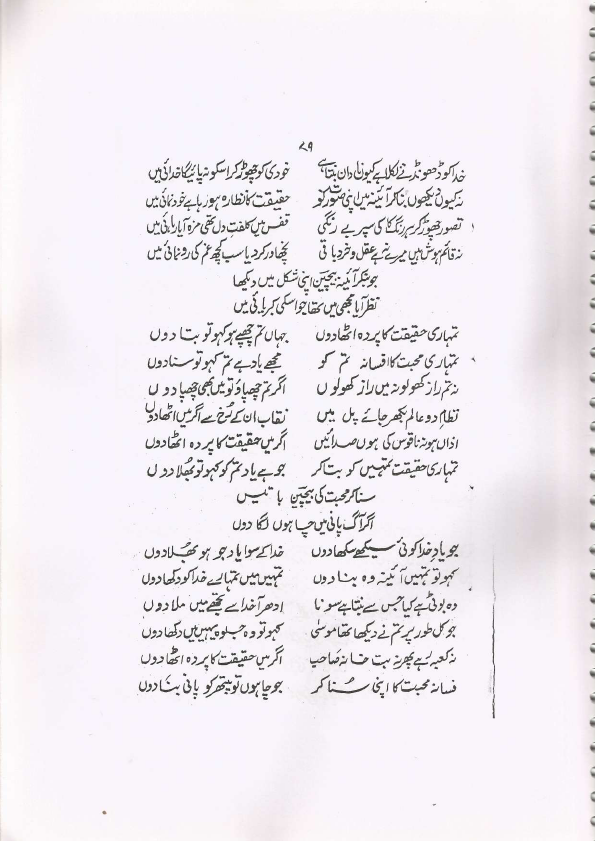 ۷۹
خدا کو ڈھونڈنے نکلا ہے کیوں نادان بنتا ہے خودی کو چھوڑ کر اسکو نہ پائیگا خدائی میں
نہ کیوں دیکھوں بنا کر آئینہ میں اپنی صورت کو حقیقت کا نظارہ ہو رہا ہے خود نمائی میں
تصور چھوڑ کر ہر رنگ کا کی سیر بے رنگی قفس میں کلفتِ دل تھی مزہ آیا رہائی میں
نہ قائم ہوش ہیں میرے نہ ہے عقل و خرد باقی نچھاور کر دیا سب کچھ غم کی رونمائی میں
جو بنکر آئینہ بیچین اپنی شکل میں دیکھا
نظر آیا مجھی میں تھا جو اسکی کبریائی میں
تمہاری حقیقت کا پردہ اٹھا دوں جہاں تم چھپے ہو کہو تو بتا دوں
تمہاری محبت کا افسانہ تم کو مجھے یاد ہے تم کہو تو سنا دوں
نہ تم راز کھولو نہ میں راز کھولوں اگر تم چھپاؤ تو میں بھی چھپا دوں
نظامِ دو عالم بکھر جائے پل میں نقاب ان کے رُخ سے اگر میں اٹھا دوں
اذاں ہو نہ ناقوس کی ہوں صدائیں اگر میں حقیقت کا پردہ اٹھا دوں
تمہاری حقیقت تمہیں کو بتا کر جو ہے یاد تم کو کہو تو بھلا دوں
سنا کر محبت کی بیچین باتیں
اگر آگ پانی میں چاہوں لگا دوں
جو یادِ خدا کوئی سیکھے سکھا دوں خدا کے سوا یاد جو ہو بھلا دوں
کہو تو تمہیں آئینہ وہ بنا دوں تمہیں میں تمہارے خدا کو دکھا دوں
وہ بوٹی ہے کیا جس سے بنتا ہے سونا ادھر آ خدا سے تجھے میں ملا دوں
جو کل طور پر تم نے دیکھا تھا موسیٰ کہو تو وہ جلوہ یہیں میں دکھا دوں
نہ کعبہ رہے پھر نہ بت خانہ صاحب اگر میں حقیقت کا پردہ اٹھا دوں
فسانہ محبت کا اپنی سُنا کر جو چاہوں تو پتھر کو پانی بنا دوں